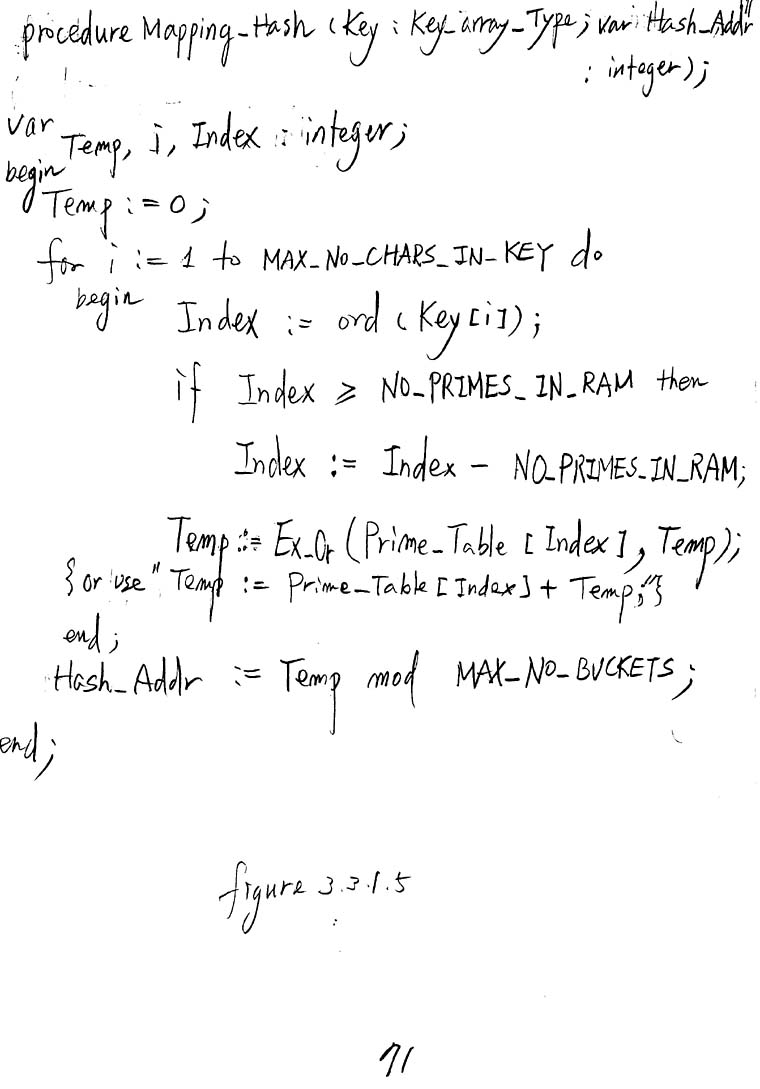 procedure Mapping_Hash (Key : Key_array_Type; var Hash_Addr
: integer);
var
Temp, i, Index : integer;
begin
Temp := 0;
for i := 1 to MAX_NO_CHARS_IN_KEY do
begin
Index := ord (Key[i]);
if Index ⩾ NO_PRIMES_IN_RAM then
Index := Index - NO_PRIMES_IN_RAM;
Temp := Ex_Or (Prime_Table [Index], Temp);
{or use "Temp := Prime_Table[Index] + Temp;"}
end;
Hash_Addr := Temp mod MAX_NO_BUCKETS;
end;
figure 3.3.1.5
71